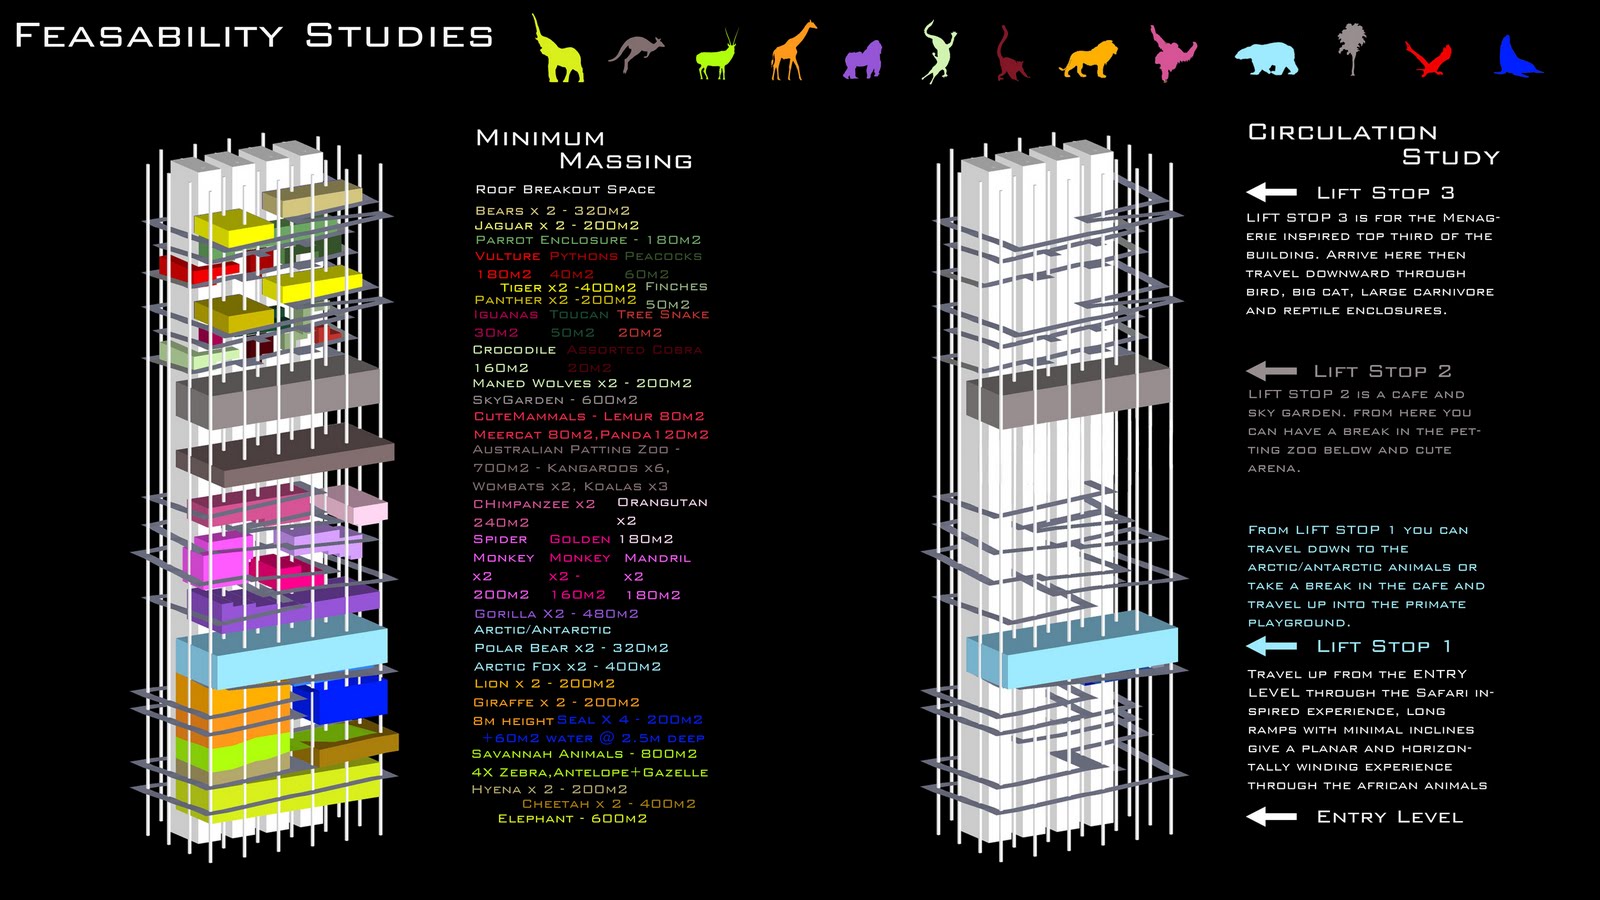 Feasability Studies
Minimum
Massing
Roof Breakout Space
Bears x 2 - 320m2
Jaguar x 2 - 200m2
Parrot Enclosure - 180m2
Vulture Pythons Peacocks
180m2 40m2 60m2
Tiger x2 -400m2 Finches
Panther x2 -200m2 50m2
Iguanas Toucan Tree Snake
30m2 50m2 20m2
Crocodile Assorted Cobra
160m2 20m2
Maned Wolves x2 - 200m2
SkyGarden - 600m2
CuteMammals - Lemur 80m2
Meercat 80m2,Panda120m2
Australian Patting Zoo -
700m2 - Kangaroos x6,
Wombats x2, Koalas x3
CHimpanzee x2 Orangutan
240m2 x2
Spider Golden 180m2
Monkey Monkey Mandril
x2 x2 - x2
200m2 160m2 180m2
Gorilla X2 - 480m2
Arctic/Antarctic
Polar Bear x2 - 320m2
Arctic Fox x2 - 400m2
Lion x 2 - 200m2
Giraffe x 2 - 200m2
8m height Seal X 4 - 200m2
+60m2 water @ 2.5m deep
Savannah Animals - 800m2
4X Zebra,Antelope+Gazelle
Hyena x 2 - 200m2
Cheetah x 2 - 400m2
Elephant - 600m2
Circulation
Study
Lift Stop 3
LIFT STOP 3 is for the Menag-
erie inspired top third of the
building. Arrive here then
travel downward through
bird, big cat, large carnivore
and reptile enclosures.
Lift Stop 2
LIFT STOP 2 is a cafe and
sky garden. from here you
can have a break in the pet-
ting zoo below and cute
arena.
From LIFT STOP 1 you can
travel down to the
arctic/antarctic animals or
take a break in the cafe and
travel up into the primate
playground.
Lift Stop 1
Travel up from the ENTRY
LEVEL through the Safari in-
spired experience, long
ramps with minimal inclines
give a planar and horizon-
tally winding experience
through the african animals
Entry Level